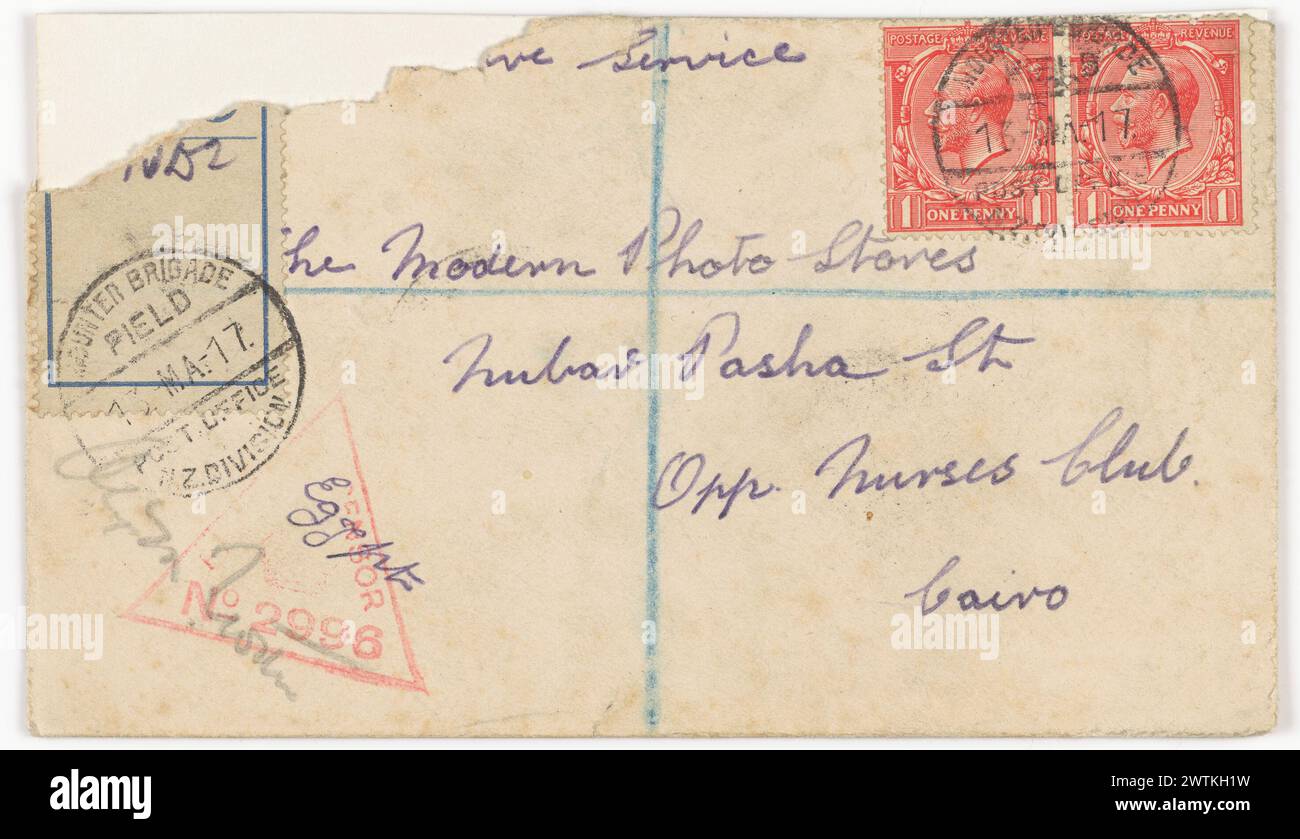 ve Service
POSTAGE REVENUE
1 ONE PENNY 1
REVENUE
1 ONE PENNY 1
MA-17
The Modern Photo Stores
Nubar Pasha St
Opp. Nurses Club.
Cairo
MOUNTED BRIGADE
FIELD
MA-17.
POST.OFFICE
N.Z.DIVISION.
Egypt
CENSOR
No 2996
alamy
Image ID: 2WTKH1W
www.alamy.com